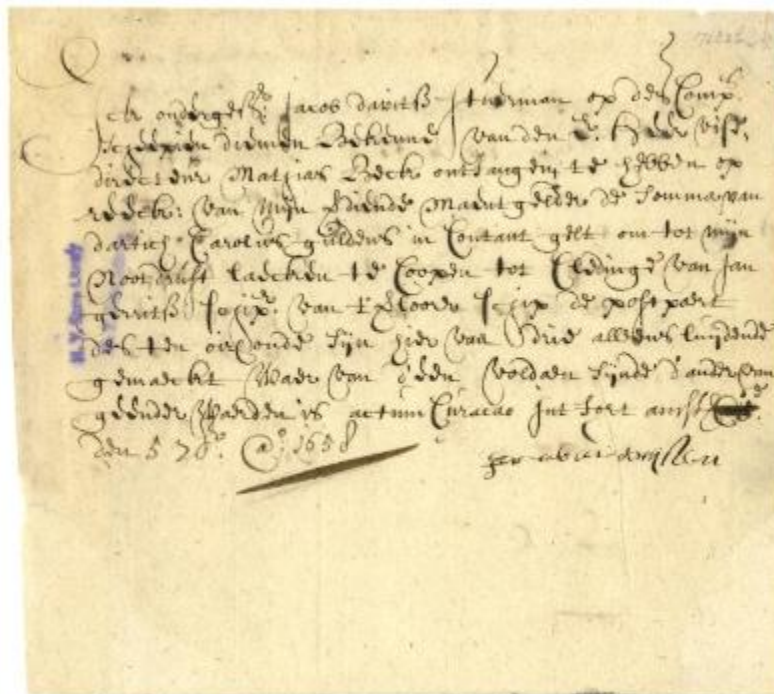 Ick ondergesr: Jacob davitss stuerman op des Comp.
bekenne van den E: Heer vise,
directeur Mathias Beck ontfangen te hebben op
reeck: van mijn diende maentgelden de somma van
dartich Carolus guldens in Contant gelt om tot mijn
Nootdruft laecken te Coopen tot Cledinge van Jan
gerritss schipr. van schip de postpaert
des ten oirconde sijn hier van drie alleens luijdende
gemaeckt Waer van d'een voldaen sijnde d'ander van
geender Waerden is actum Curacao int fort amst
den 5 1658
N.Y. State Library